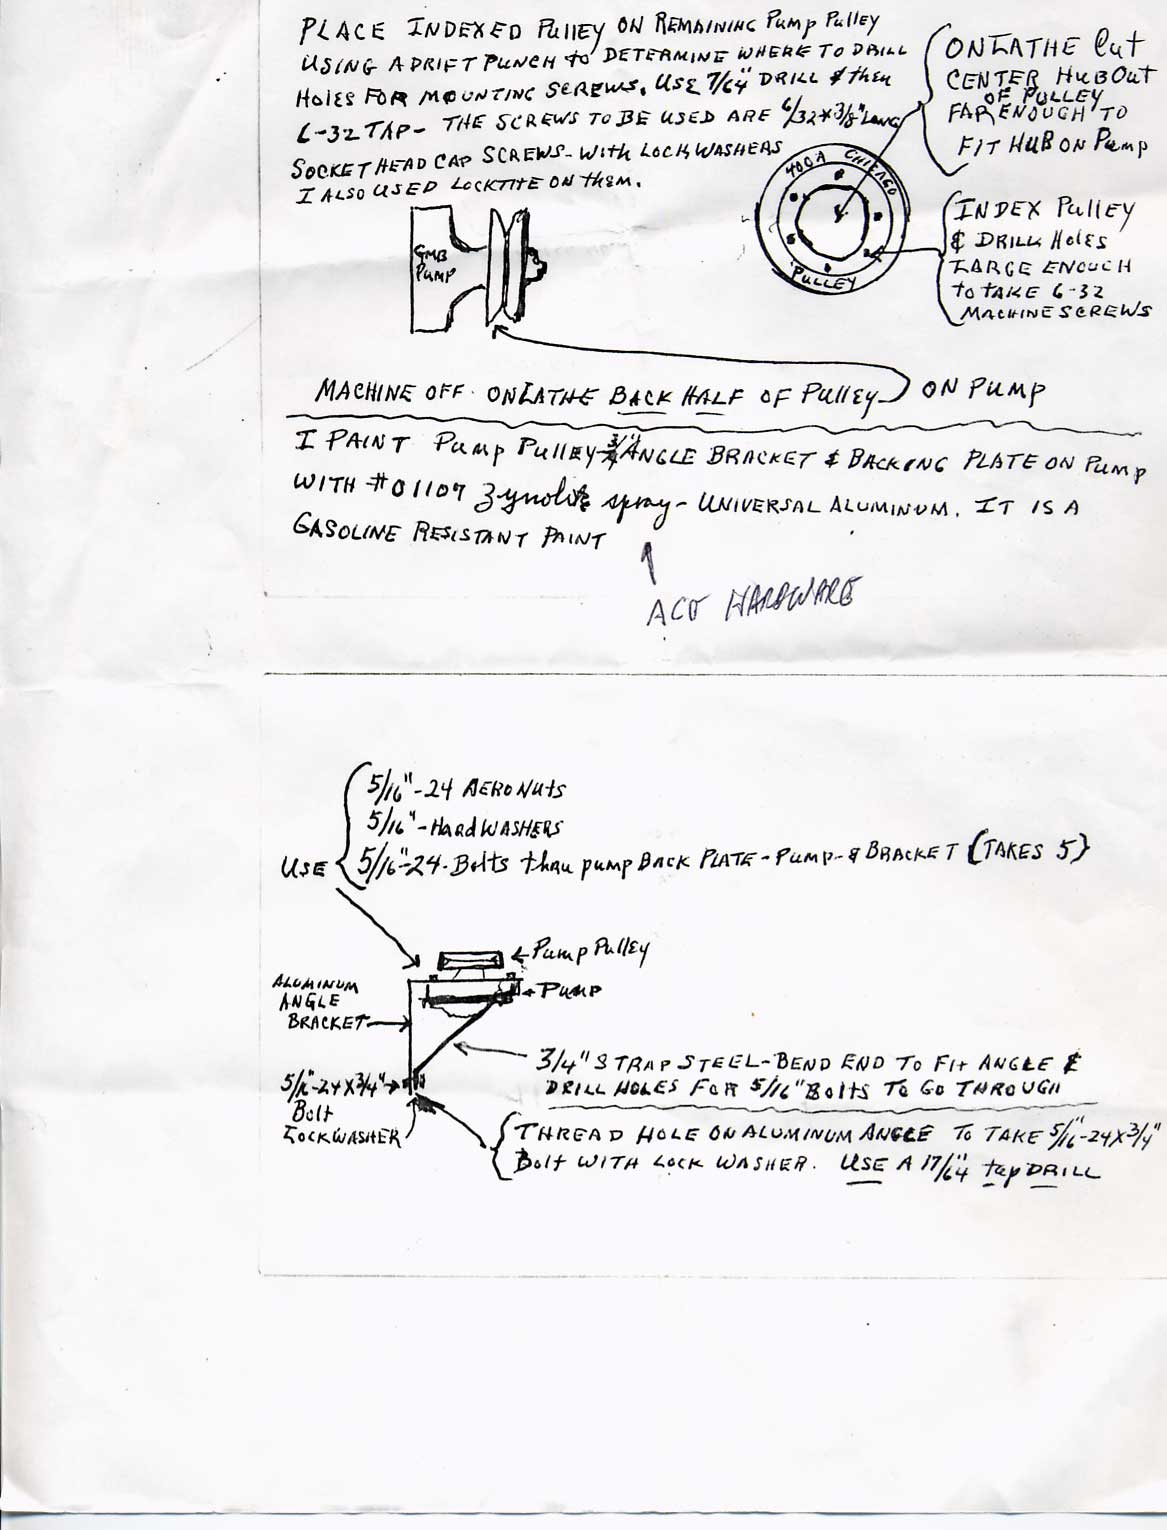 PLACE INDEXED Pulley ON REMAINING Pump Pulley
USING A DRIFT PUNCH to DETERMINE WHERE TO DRILL
Holes FOR MOUNTING SCREWS. USE 7/64" DRILL & then
6-32 TAP- THE SCREWS TO BE USED ARE 6/32 x 3/8" Long
SOCKET HEAD CAP SCREWS- With LOCKWASHERS
I ALSO USED LOCKTITE ON THEM.
ON LATHE Cut
CENTER HUB Out
OF PULLEY
FAR ENOUGH TO
FIT HUB ON Pump
400A CHICAGO
PULLEY
INDEX Pulley
& DRILL Holes
LARGE ENOUGH
to TAKE 6-32
MACHINE SCREWS
GMB
PUMP
MACHINE OFF ON LATHE BACK HALF OF Pulley ON PUMP
I PAINT Pump Pulley- 3/4" ANGLE BRACKET & BACKING PLATE ON Pump
WITH #01107 Zynolite spray- UNIVERSAL ALUMINUM. IT IS A
GASOLINE RESISTANT PAINT
ACE HARDWARE
5/16"-24 AERO Nuts
5/16"-Hard WASHERS
USE 5/16"-24-Bolts thru pump BACK PLATE-PUMP-& BRACKET (TAKES 5)
Pump Pulley
PUMP
ALUMINUM
ANGLE
BRACKET
3/4" STRAP STEEL-BEND END TO FIT ANGLE &
DRILL HOLES FOR 5/16" Bolts TO GO THROUGH
5/16"-24X3/4"
Bolt
LOCKWASHER
THREAD HOLE ON ALUMINUM ANGLE TO TAKE 5/16-24X3/4"
Bolt WITH LOCK WASHER. USE A 17/64" tap DRILL